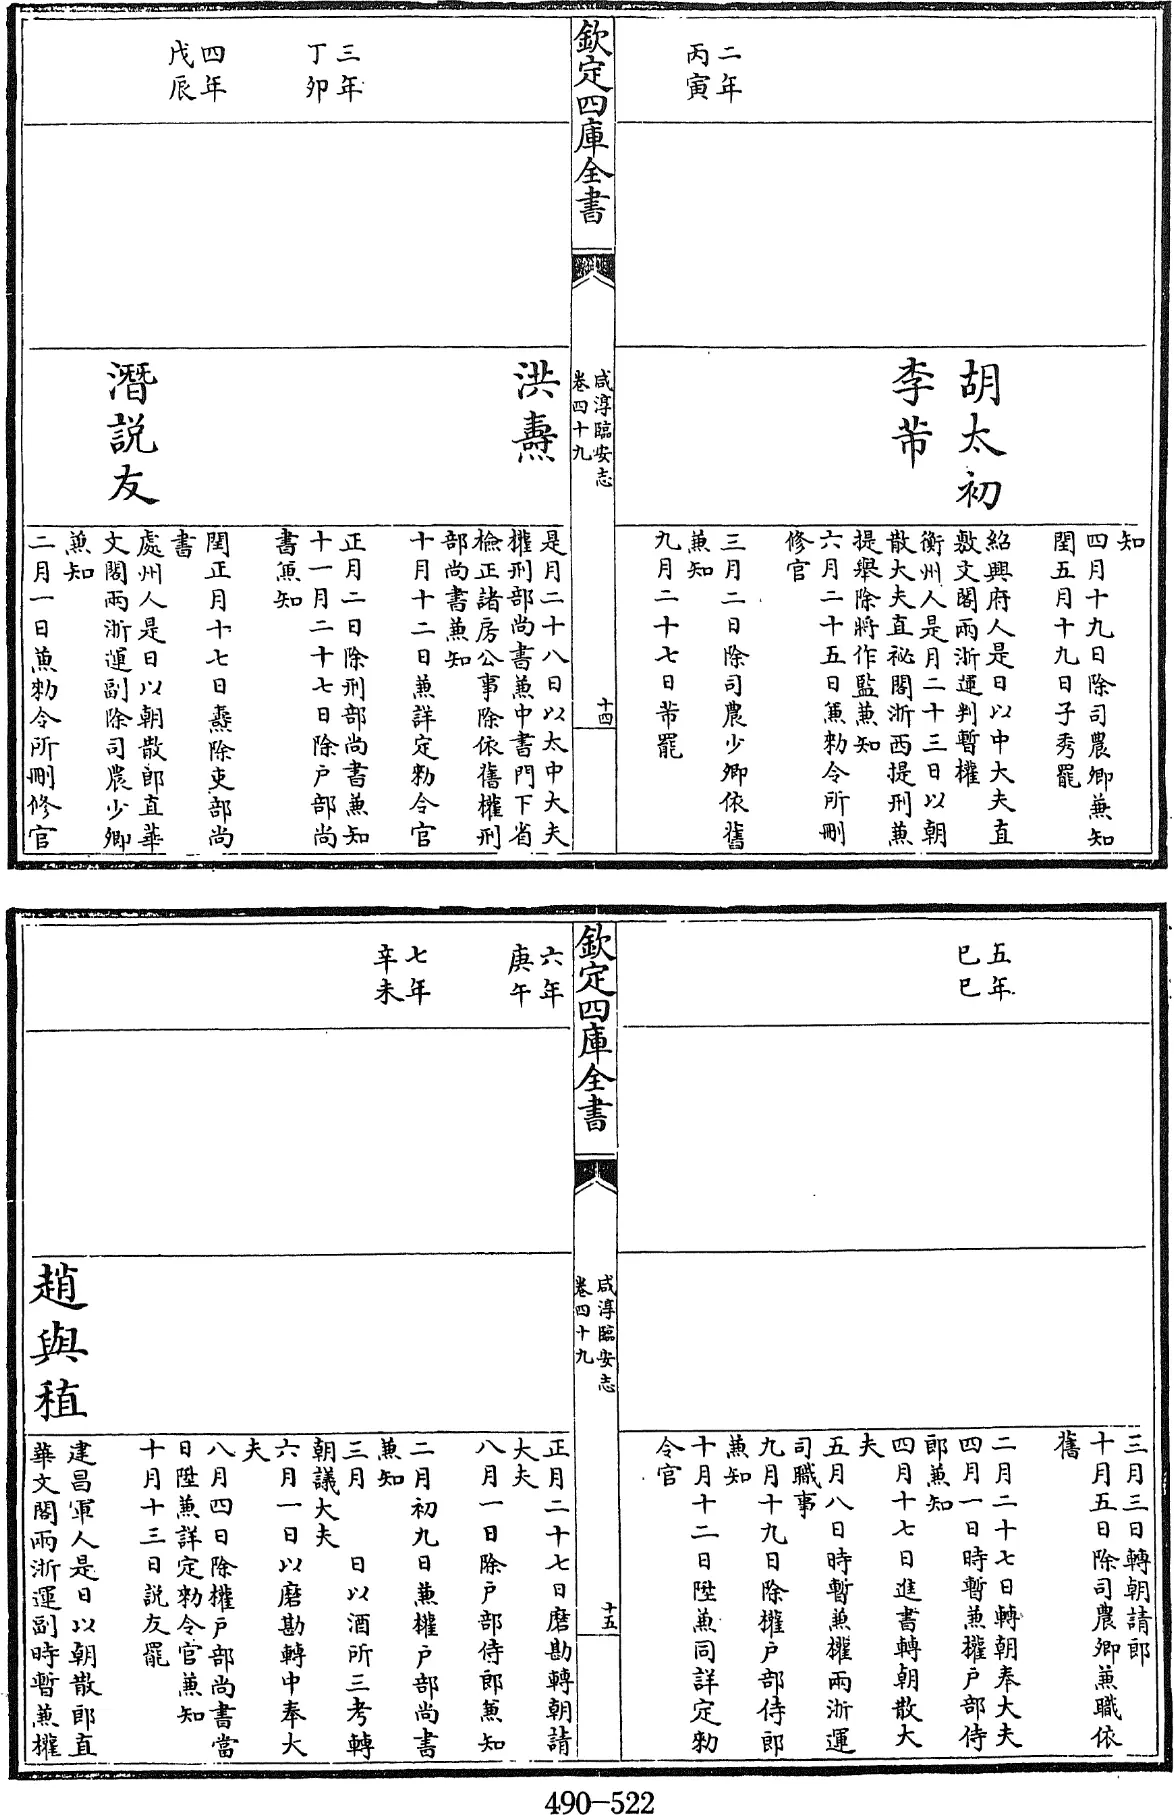 知
四月十九日除司農卿兼知
閏五月十九日子秀罷
胡太初
紹興府人是日以中大夫直
敷文閣兩浙運判暫權
李芾
衡州人是月二十三日以朝
散大夫直祕閣浙西提刑兼
提舉除將作監兼知
六月二十五日兼勅令所刪
修官
二年
丙寅
三月二日除司農少卿依舊
兼知
九月二十七日芾罷
欽定四庫全書
咸淳臨安志
卷四十九
十四
洪燾
是月二十八日以太中大夫
權刑部尚書兼中書門下省
檢正諸房公事除依舊權刑
部尚書兼知
十月十二日兼詳定勅令官
三年
丁卯
正月二日除刑部尚書兼知
十一月二十七日除户部尚
書兼知
四年
戊辰
閏正月十七日燾除吏部尚
書
潛說友
處州人是日以朝散郎直華
文閣兩浙運副除司農少卿
兼知
二月一日兼勅令所刪修官
三月三日轉朝請郎
十月五日除司農卿兼職依
舊
五年
己巳
二月二十七日轉朝奉大夫
四月一日時暫兼權户部侍
郎兼知
四月十七日進書轉朝散大
夫
五月八日時暫兼權兩浙運
司職事
九月十九日除權户部侍郎
兼知
十月十二日陞兼同詳定勅
令官
欽定四庫全書
咸淳臨安志
卷四十九
十五
六年
庚午
正月二十七日磨勘轉朝請
大夫
八月一日除户部侍郎兼知
七年
辛未
二月初九日兼權户部尚書
兼知
三月　日以酒所三考轉
朝議大夫
六月一日以磨勘轉中奉大
夫
八月四日除權户部尚書當
日陞兼詳定勅令官兼知
十月十三日說友罷
趙與稙
建昌軍人是日以朝散郎直
華文閣兩浙運副時暫兼權
490-522